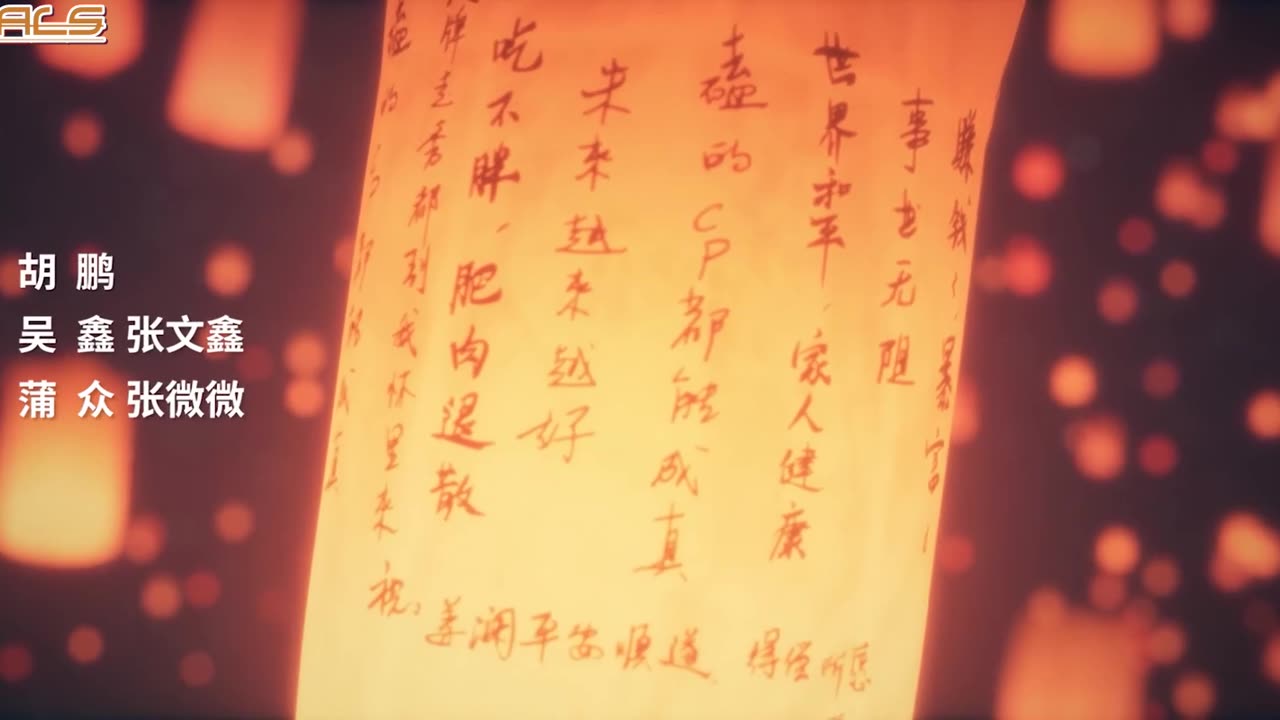 ACS
胡 鹏
吴 鑫 张文鑫
蒲 众 张微微
赚钱，暴富
事世无阻
世界和平，家人健康
去磕的CP都能成真
未来越来越好
吃不胖，肥肉退散
牌走秀都到我怀里来
成真
平安顺遂 得偿所愿